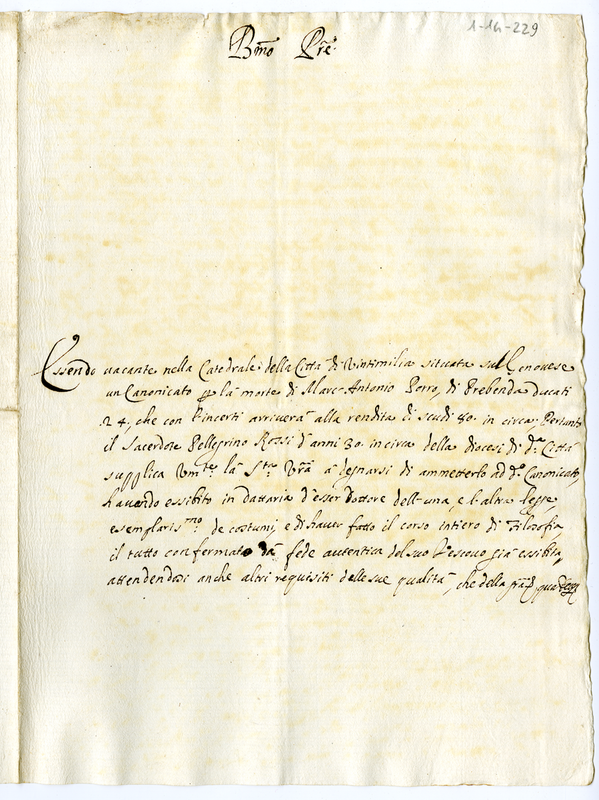 1-14-229
Bmo Pre.
Essendo vacante nella Catedrale della Città di Vintimilia situata sul Genovese
un Canonicato p la morte di Marc Antonio Porro, di Prebenda ducati
24, che con l'incerti arriverà alla rendita di scudi 80. in circa; Pertanto
il Sacerdote Pellegrino Rossi d'anni 30. incirca della diocesi di da Città
supplica Vmte la Sta Vra à degnarsi di ammetterlo ad do Canonicato,
havendo essibito in dattaria d'esser Dottore dell'una, e l'altra legge
esemplarismo de costumi, e di haver fatto il corso intiero di Filosofia
il tutto confermato dà fede autentica del suo Vescovo già essibita,
attendendosi anche altri requisiti delle sue qualità, che della